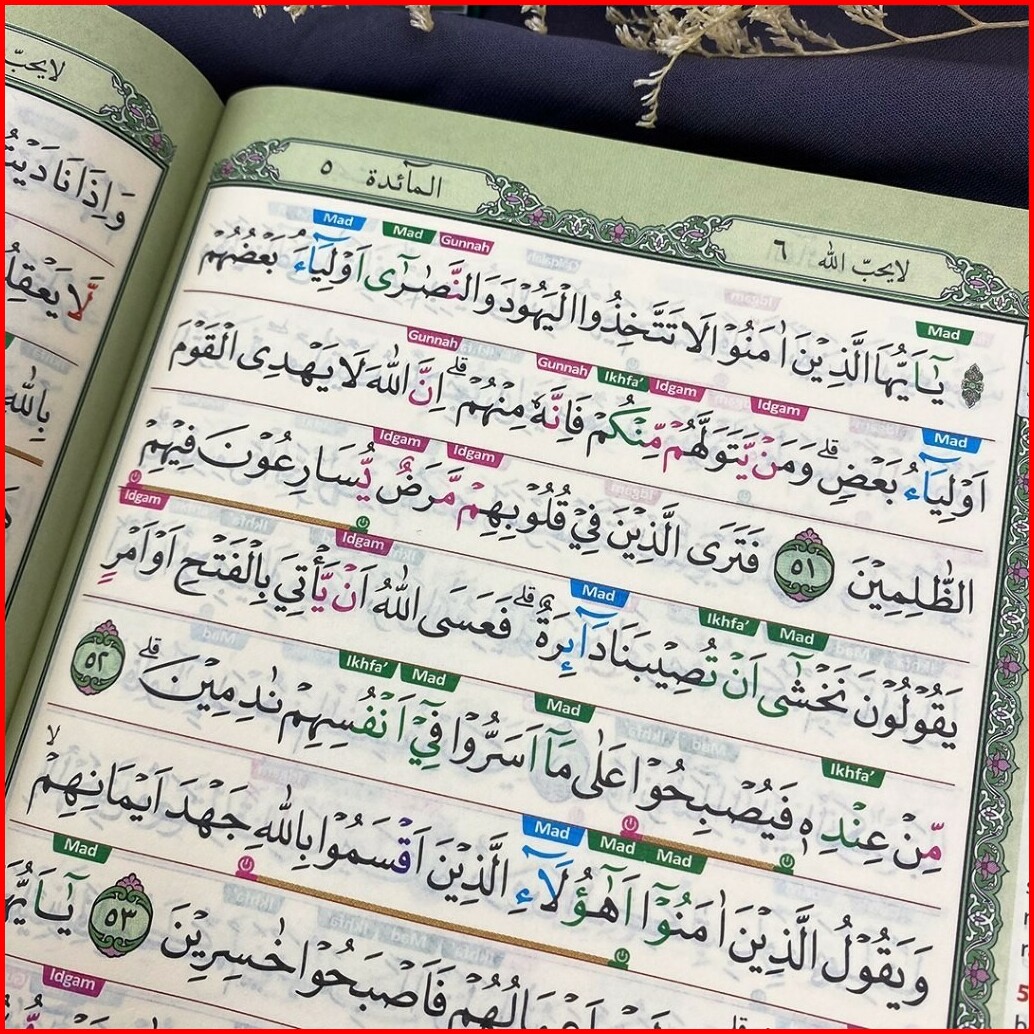 لايحبّ الله ٦
المآئدة ٥
Mad Mad Gunnah Mad
يٰٓاَيُّهَا الَّذِيْنَ اٰمَنُوْا لَا تَتَّخِذُوا الْيَهُوْدَ وَالنَّصٰرٰٓى اَوْلِيَاۤءَ ۘ بَعْضُهُمْ
Mad Idgam Idgam Ikhfa’ Gunnah Gunnah
اَوْلِيَاۤءُ بَعْضٍۗ وَمَنْ يَّتَوَلَّهُمْ مِّنْكُمْ فَاِنَّهٗ مِنْهُمْۗ اِنَّ اللّٰهَ لَا يَهْدِى الْقَوْمَ
Idgam Idgam
الظّٰلِمِيْنَ ٥١ فَتَرَى الَّذِيْنَ فِيْ قُلُوْبِهِمْ مَّرَضٌ يُّسَارِعُوْنَ فِيْهِمْ
Ikhfa’ Mad Mad Idgam Idgam
يَقُوْلُوْنَ نَخْشٰٓى اَنْ تُصِيْبَنَا دَاۤىِٕرَةٌ ۗفَعَسَى اللّٰهُ اَنْ يَّأْتِيَ بِالْفَتْحِ اَوْ اَمْرٍ
Ikhfa’ Mad Mad Ikhfa’
مِّنْ عِنْدِهٖ فَيُصْبِحُوْا عَلٰى مَآ اَسَرُّوْا فِيْٓ اَنْفُسِهِمْ نٰدِمِيْنَۗ ٥٢
Mad Mad Mad
وَيَقُوْلُ الَّذِيْنَ اٰمَنُوْٓا اَهٰٓؤُلَاۤءِ الَّذِيْنَ اَقْسَمُوْا بِاللّٰهِ جَهْدَ اَيْمَانِهِمْۙ
Mad
اَعْمَالُهُمْ فَاَصْبَحُوْا خٰسِرِيْنَ ٥٣
Idgam
لايحبّ
وَاِذَا نَادَيْتُ
لَّا يَعْقِلُ
بِاللّٰهِ